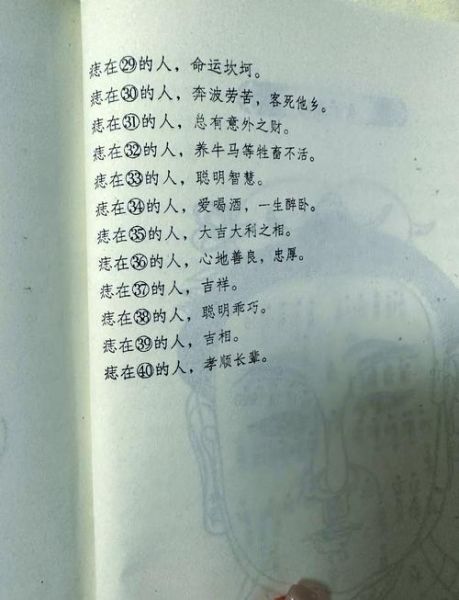 痣在㉙的人，命运坎坷。
痣在㉚的人，奔波劳苦，客死他乡。
痣在㉛的人，总有意外之财。
痣在㉜的人，养牛马等牲畜不活。
痣在㉝的人，聪明智慧。
痣在㉞的人，爱喝酒，一生醉卧。
痣在㉟的人，大吉大利之相。
痣在㊱的人，心地善良，忠厚。
痣在㊲的人，吉祥。
痣在㊳的人，聪明乖巧。
痣在㊴的人，吉相。
痣在㊵的人，孝顺长辈。